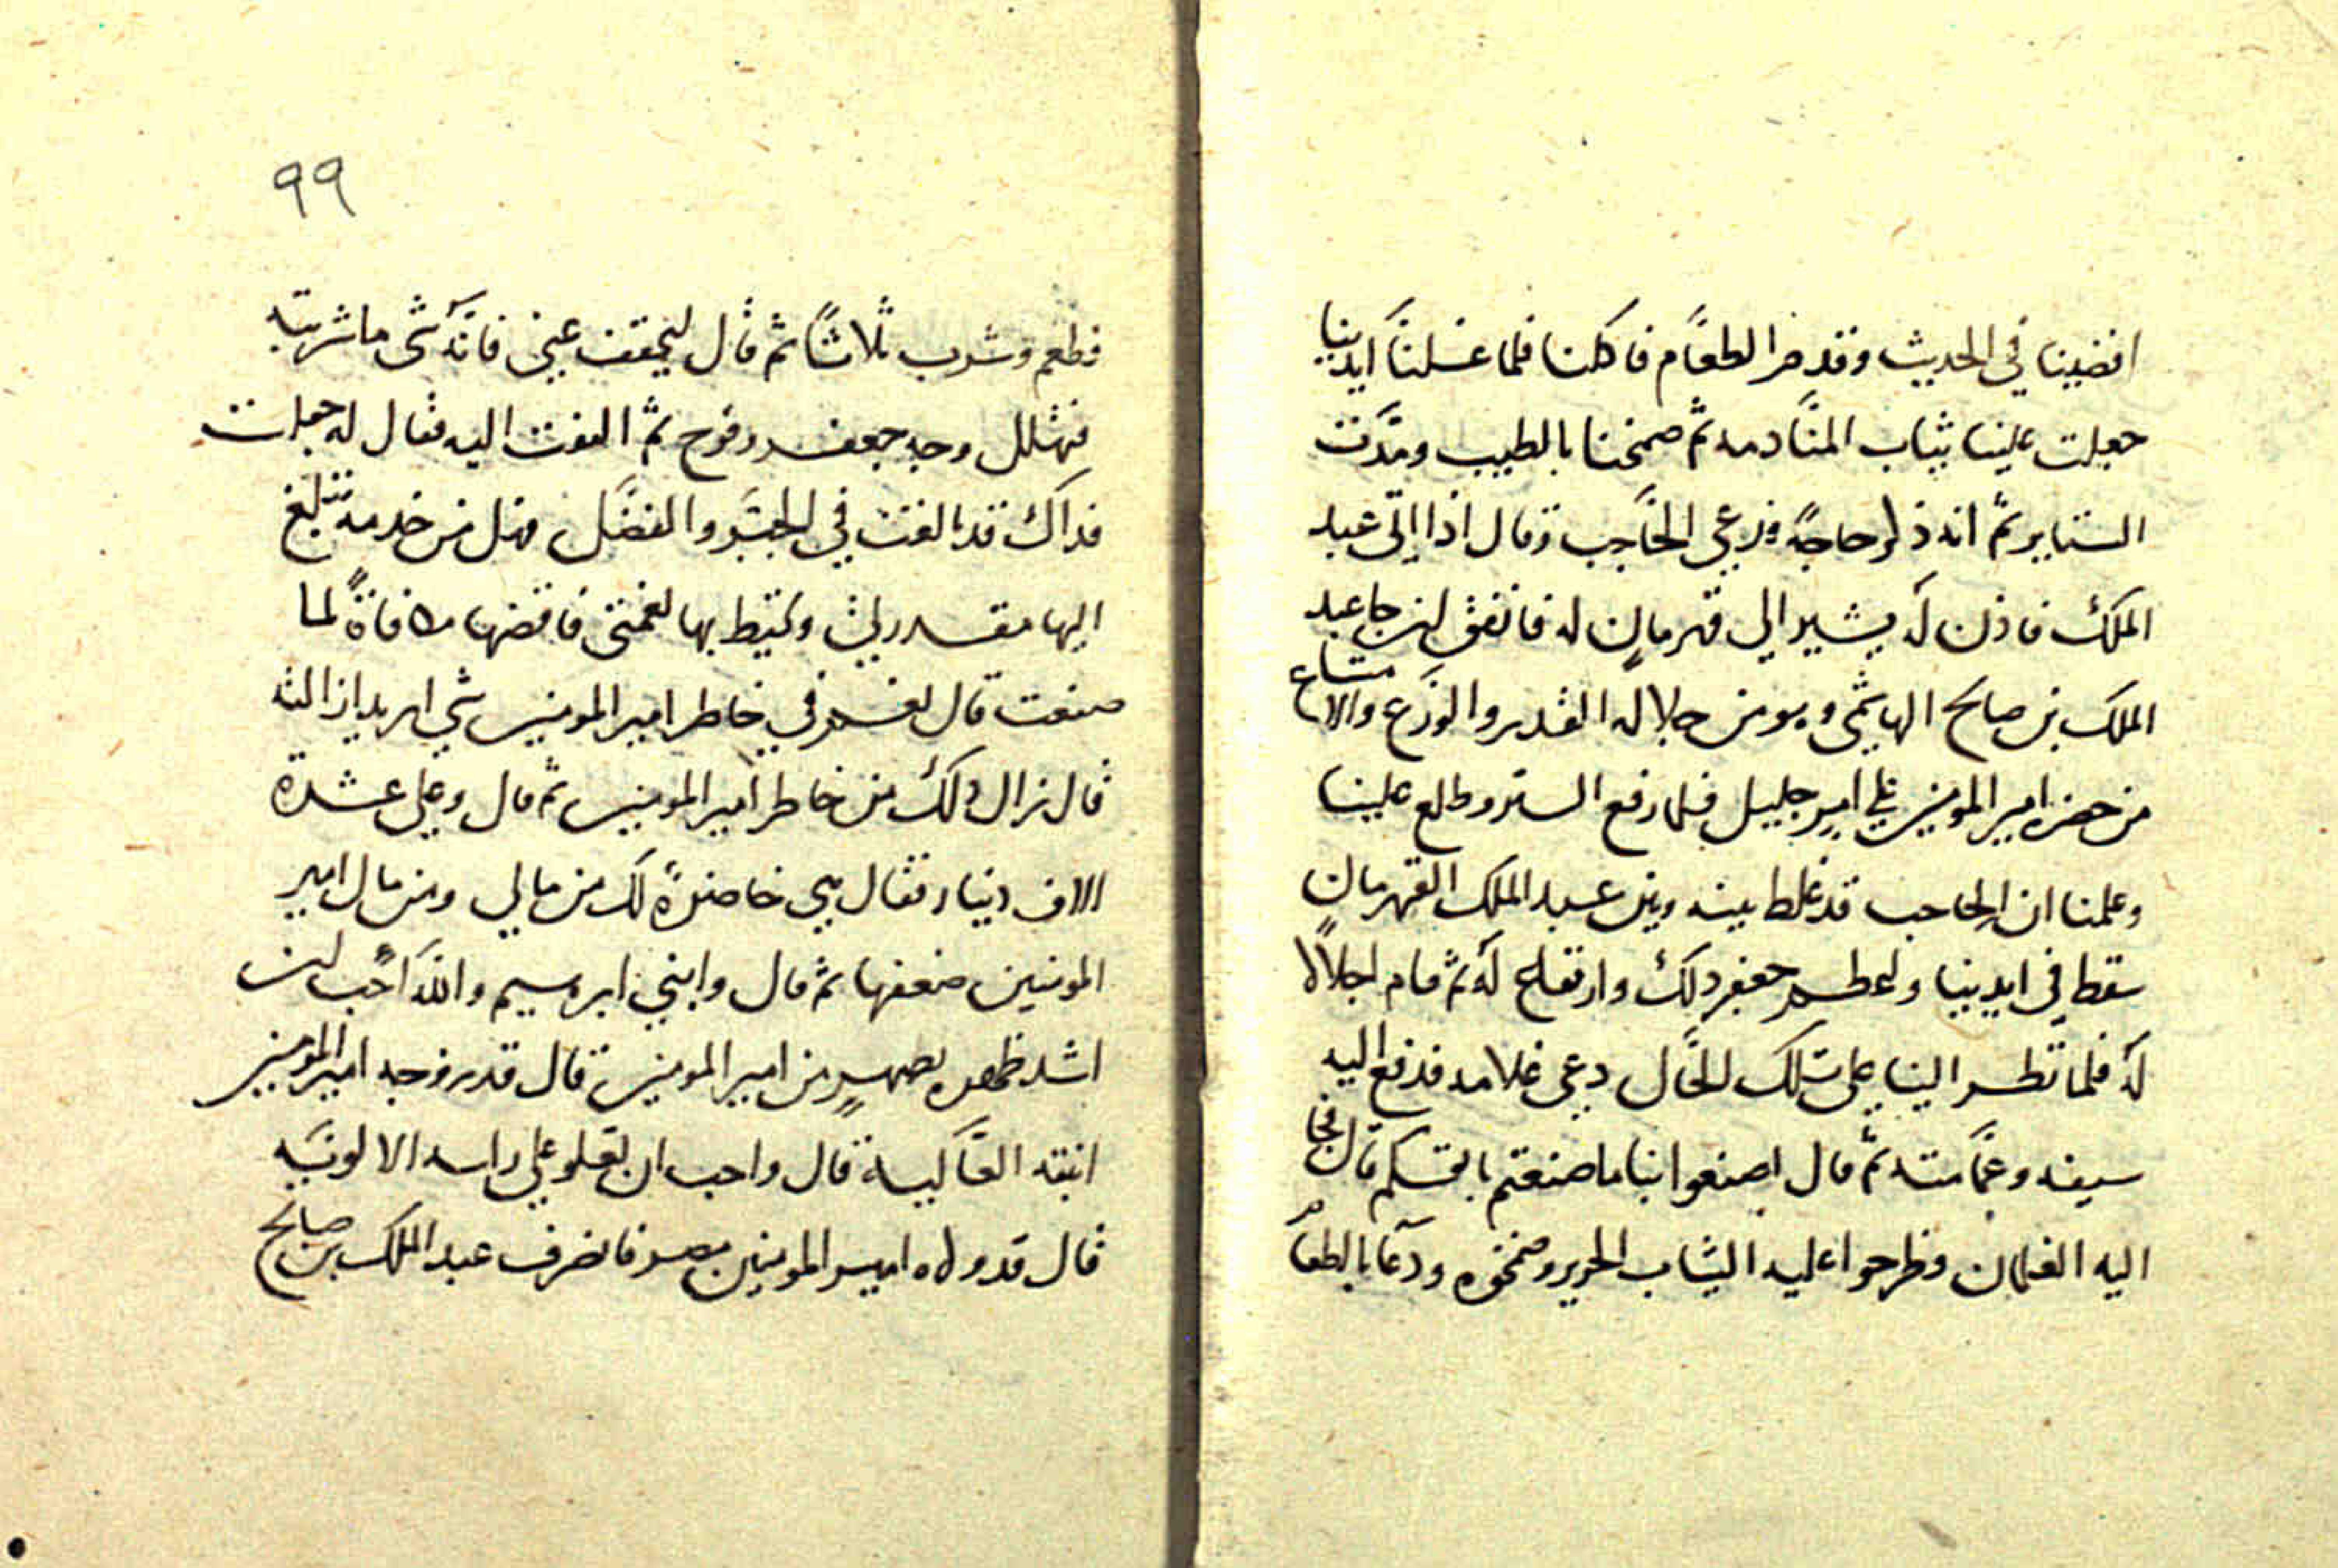 افضينا في الحديث وقدم الطعام فاكلنا فلما غسلنا ايدينا
جعلت علينا ثياب المنادمه ثم ضمخنا بالطيب ومدت
الستاير ثم انه ذكر حاجة فدعى الحاجب وقال اذا اتى عبد
الملك فاذن له يشير الى قهرمان له فاتفق ان جا عبد
الملك بن صالح الهاشمى وهو من جلالة القدر والورع والامتناع
من حضرة امير المومنين على امر جليل فلما رفع الستر وطلع علينا
وعلمنا ان الحاجب قد غلط بينه وبين عبد الملك القهرمان
سقط في ايدينا واعظم جعفر ذلك وارتفاع له ثم قام اجلالا
له فلما نظر الينا على تلك الحال دعى غلامه فدفع اليه
سيفه وعمامته ثم قال اصنعوا بنا ما صنعتم بانفسكم قال فجا
اليه الغلمان وطرحوا عليه الثياب الحرير وضمخوه ودعا بالطعام
٩٩
فطعم وشرب ثلاثا ثم قال ليخفف عني فانه شى ما شربته
فتهلل وجه جعفر وفرح ثم التفت اليه فقال له جعلت
فداك قد بالغت في الخير والفضل فهل من خدمة تبلغ
اليها مقدرتي وتحيط بها نعمتى فاقضها مكافاة لما
صنعت قال نعم في خاطر امير المومنين شي اريد ازالته
قال زال ذلك من خاطر امير المومنين ثم قال وعلى عشرة
الاف دينار فقال هي حاضرة لك من مالي ومن مال امير
المومنين ضعفها ثم قال وابني ابرهسيم والله احب ان
اشد ظهره بصهر من امير المومنين قال قد زوجه امير المومنين
ابنته العالية قال واحب ان تعلو على راسه الالوية
قال قد ولاه امير المومنين مصر فانصرف عبد الملك بن صالح